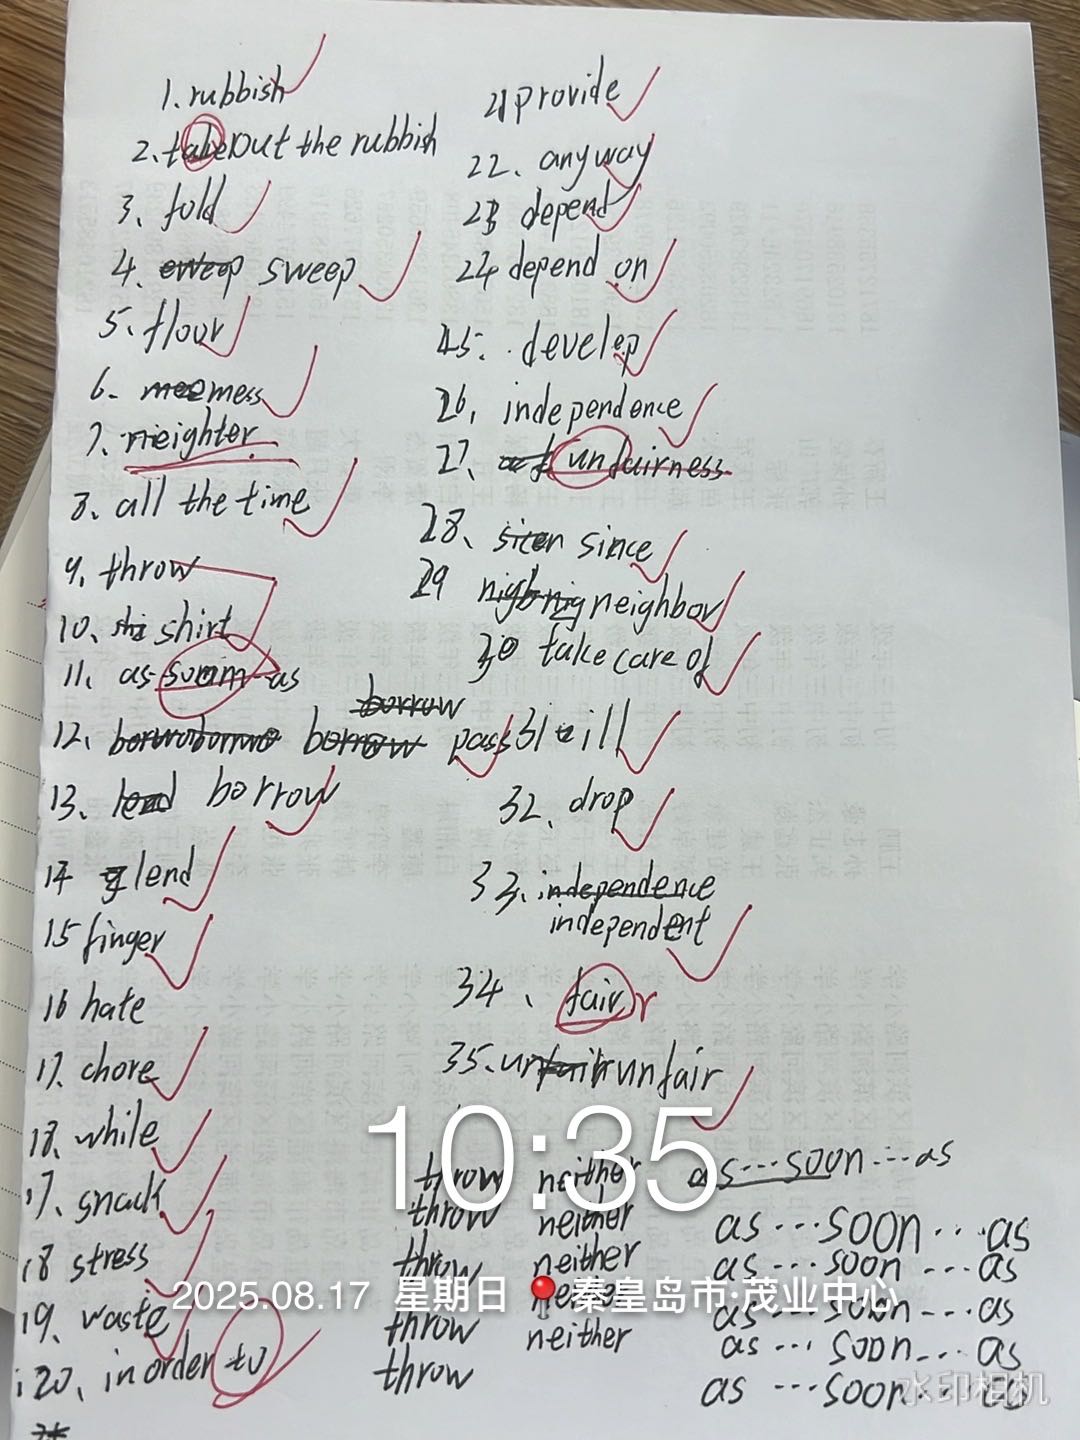 1. rubbish
2. take out the rubbish
3、fold
4. sweep
5、floor
6. mess
7. neighter
8、all the time
9. throw
10、shirt
11. as soom as
12、borrow pass
13、lend borrow
14 lend
15 finger
16 hate
17. chore
18、while
17、snack
18 stress
19、waste
20、in order to
21 provide
22、anyway
23 depend
24 depend on
25、develep
26, independence
27、unfairness
28、since
29 neighbor
30 take care of
31 ill
32、drop
33、independence
independent
34、fair r
35、unfair
throw neither as...soon...as
throw neither as...soon...as
throw neither as...soon...as
throw neither as...soon...as
throw neither as...soon...as
throw as...soon...as
10:35
2025.08.17 星期日 秦皇岛市·茂业中心
水印相机